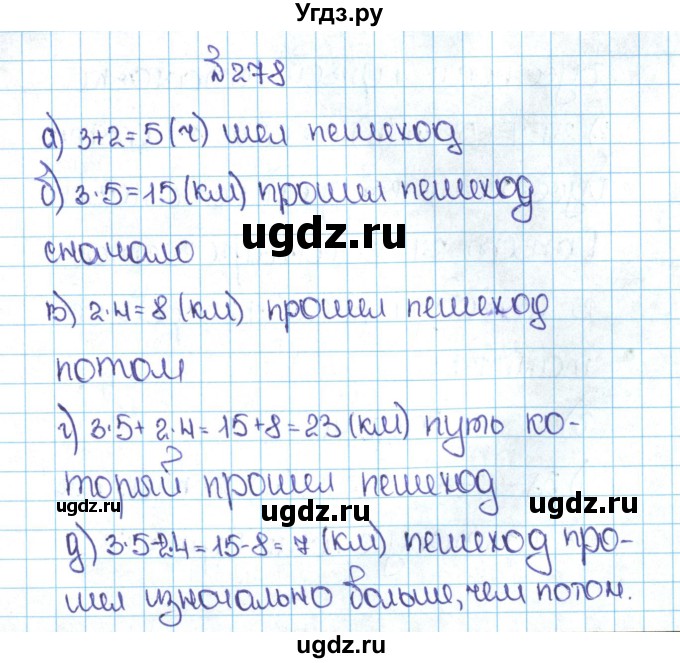 Угдз.ру
№278
а) 3+2=5(ч) шел пешеход
б) 3·5=15(км) прошел пешеход
ugdz.ru
сначало
в) 2·4=8 (км) прошел пешеход
потом
г) 3·5+2·4=15+8=23(км) путь ко-
торый прошел пешеход
ugdz.ru ugdz.ru ugdz.ru
д) 3·5-2·4=15-8=7 (км) пешеход про-
шел изначально больше, чем потом.
ugdz.ru ugdz.ru